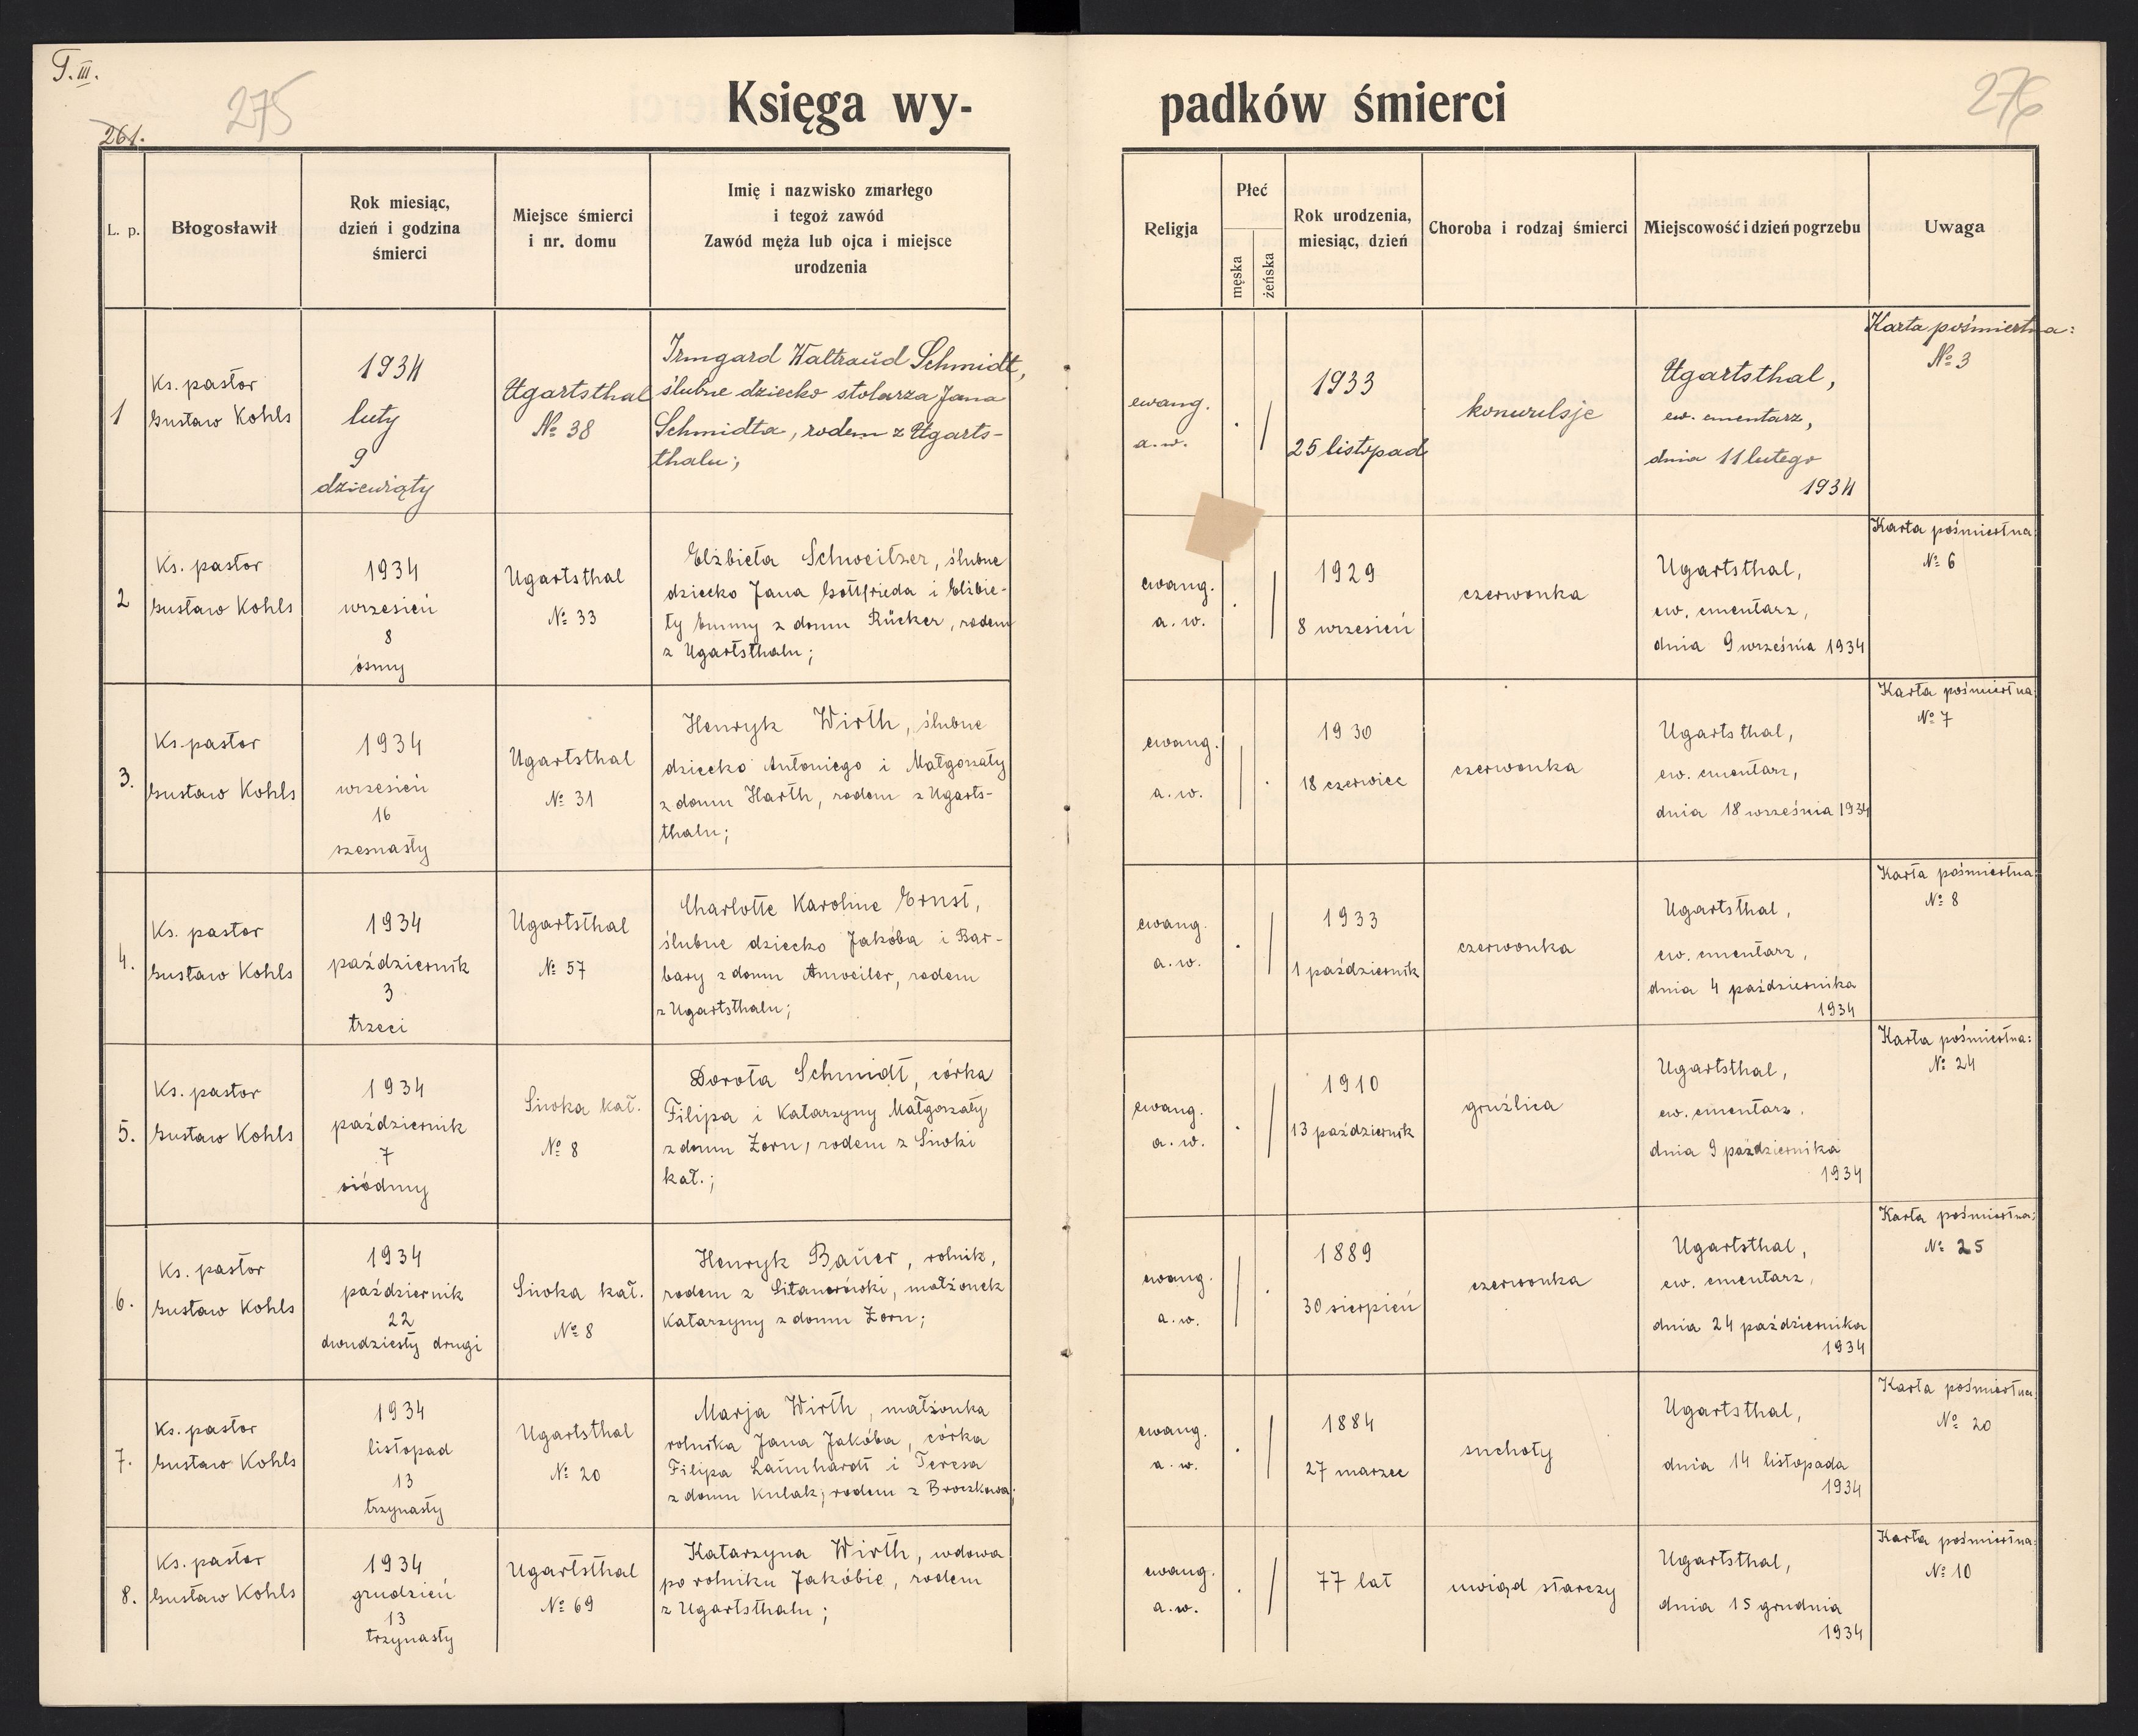 T. III.
275
261.
Księga wy-
padków śmierci
276
L. p.
Błogosławił
Rok miesiąc,
dzień i godzina
śmierci
Miejsce śmierci
i nr. domu
Imię i nazwisko zmarłego
i tegoż zawód
Zawód męża lub ojca i miejsce
urodzenia
Religja
Płeć
męska
żeńska
Rok urodzenia,
miesiąc, dzień
Choroba i rodzaj śmierci
Miejscowość i dzień pogrzebu
Uwaga
1
Ks. pastor
Gustaw Kohls
1934
luty
9
dziewiąty
Ugartsthal
№ 38
Irmgard Waltraud Schmidt,
ślubne dziecko stolarza Jana
Schmidta, rodem z Ugarts-
thalu;
ewang.
a. w.
1933
25 listopad
konwulsje
Ugartsthal,
ew. cmentarz,
dnia 11 lutego
1934
Karta pośmiertna:
№ 3
2
Ks. pastor
Gustaw Kohls
1934
wrzesień
8
ósmy
Ugartsthal
№ 33
Elżbieta Schweitzer, ślubne
dziecko Jana Gottfrieda i Elżbie-
ty Emmy z domu Rücker, rodem
z Ugartsthalu;
ewang.
a. w.
1929
8 wrzesień
czerwonka
Ugartsthal,
ew. cmentarz,
dnia 9 września 1934
Karta pośmiertna:
№ 6
3.
Ks. pastor
Gustaw Kohls
1934
wrzesień
16
szesnasty
Ugartsthal
№ 31
Henryk Wirth, ślubne
dziecko Antoniego i Małgorzaty
z domu Harth, rodem z Ugarts-
thalu;
ewang.
a. w.
1930
18 czerwiec
czerwonka
Ugartsthal,
ew. cmentarz,
dnia 18 września 1934
Karta pośmiertna:
№ 7
4.
Ks. pastor
Gustaw Kohls
1934
październik
3
trzeci
Ugartsthal
№ 57
Charlotte Karoline Ernst,
ślubne dziecko Jakóba i Bar-
bary z domu Anweiler, rodem
z Ugartsthalu;
ewang.
a. w.
1933
1 październik
czerwonka
Ugartsthal,
ew. cmentarz,
dnia 4 października
1934
Karta pośmiertna:
№ 8
5.
Ks. pastor
Gustaw Kohls
1934
październik
7
siódmy
Siwka kał.
№ 8
Dorota Schmidt, córka
Filipa i Katarzyny Małgorzaty
z domu Zorn, rodem z Siwki
kał.;
ewang.
a. w.
1910
13 październik
gruźlica
Ugartsthal,
ew. cmentarz,
dnia 9 października
1934
Karta pośmiertna:
№ 24
6.
Ks. pastor
Gustaw Kohls
1934
październik
22
dwudziesty drugi
Siwka kał.
№ 8
Henryk Bauer, rolnik,
rodem z Sitauerówki, małżonek
Katarzyny z domu Zorn;
ewang.
a. w.
1889
30 sierpień
czerwonka
Ugartsthal,
ew. cmentarz,
dnia 24 października
1934
Karta pośmiertna:
№ 25
7.
Ks. pastor
Gustaw Kohls
1934
listopad
13
trzynasty
Ugartsthal
№ 20
Marja Wirth, małżonka
rolnika Jana Jakóba, córka
Filipa Launhardt i Teresa
z domu Kulak; rodem z Broczkowa;
ewang.
a. w.
1884
27 marzec
suchoty
Ugartsthal,
dnia 14 listopada
1934
Karta pośmiertna:
№ 20
8.
Ks. pastor
Gustaw Kohls
1934
grudzień
13
trzynasty
Ugartsthal
№ 69
Katarzyna Wirth, wdowa
po rolniku Jakóbie, rodem
z Ugartsthalu;
ewang.
a. w.
77 lat
uwiąd starczy
Ugartsthal,
dnia 15 grudnia
1934
Karta pośmiertna:
№ 10